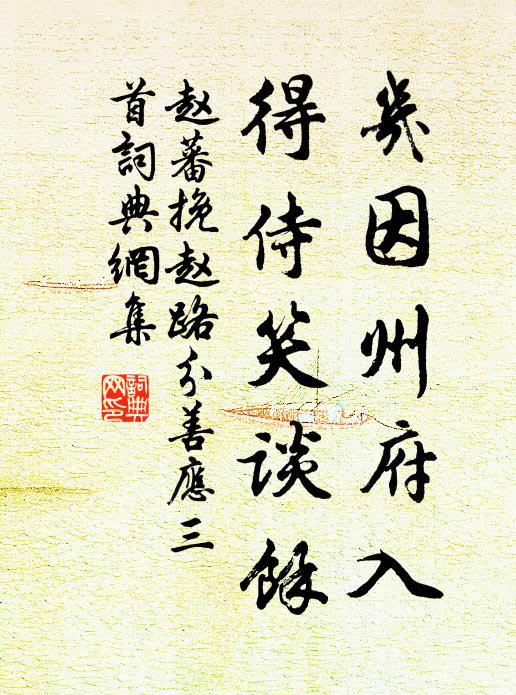 幾因州府入
得侍笑談餘
赵蕃挽赵路分善應三
首詞典網集
詞典
网印